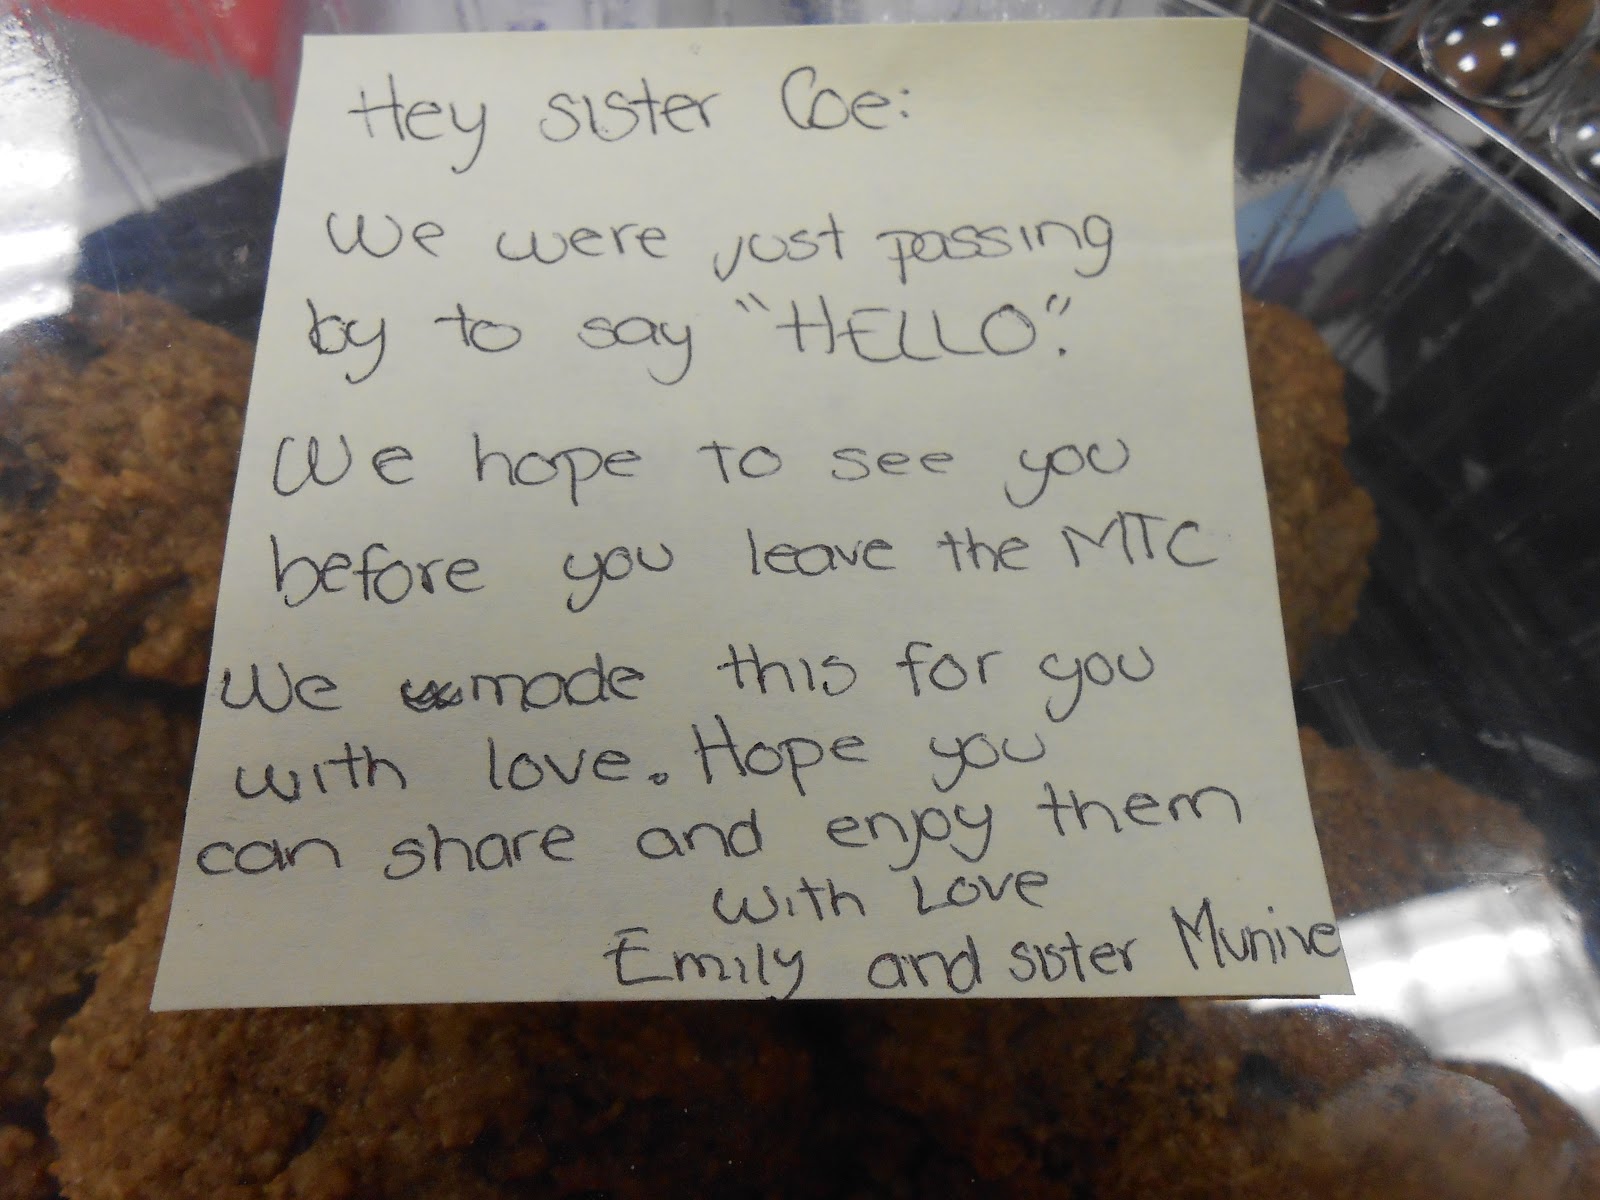 Hey sister Coe:
We were just passing
by to say "HELLO".
We hope to see you
before you leave the MTC
We made this for you
with love. Hope you
can share and enjoy them
with Love
Emily and sister Munive